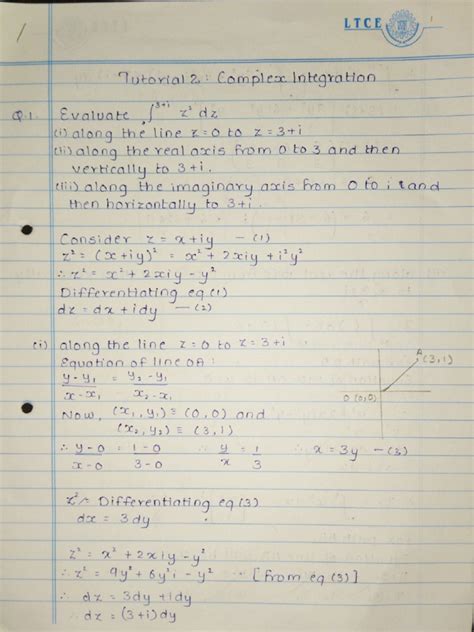 LTCE
1
Tutorial 2 : Complex Integration
Q.1. Evaluate ∫³⁺ⁱ z² dz
(i) along the line z=0 to z=3+i
(ii) along the real axis from 0 to 3 and then
vertically to 3+i.
(iii) along the imaginary axis from 0 to i and
then horizontally to 3+i.
Consider z = x+iy — (1)
z² = (x+iy)² = x² + 2xiy + i²y²
∴ z² = x² + 2xiy - y²
Differentiating eq (1)
dz = dx + idy — (2)
(i) along the line z=0 to z=3+i
Equation of line OA :
A (3,1)
O (0,0)
y-y₁ / x-x₁ = y₂-y₁ / x₂-x₁
Now, (x₁,y₁) ≡ (0,0) and
(x₂,y₂) ≡ (3,1)
∴ y-0 / x-0 = 1-0 / 3-0 ∴ y/x = 1/3 ∴ x = 3y — (3)
Differentiating eq (3)
dx = 3dy
z² = x² + 2xiy - y²
∴ z² = 9y² + 6y²i - y² [From eq (3)]
∴ dz = 3dy + idy
∴ dz = (3+i)dy